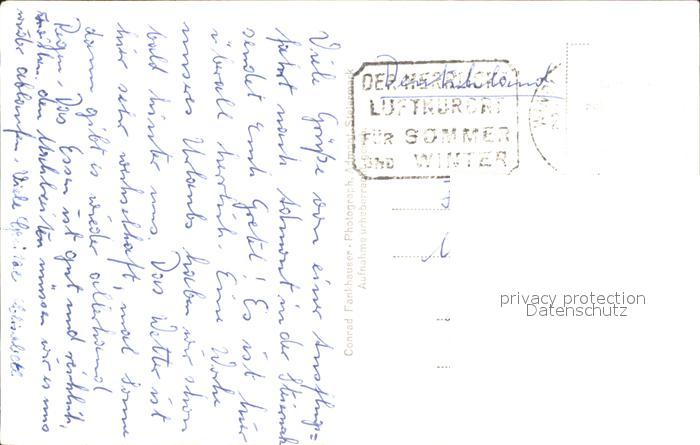 Viele Grüße von einer Ausflugs=
fahrt nach Admont in der Steiermark
sendet Euch Gretel! Es ist hier
überall herrlich. Eine Woche
unseres Urlaubs haben wir schon
bald hinter uns. Das Wetter ist
hier sehr wechselhaft, mal Sonne
dann gibt es wieder allerhand
Regen. Das Essen ist gut und reichlich,
den müssen wir es uns
wieder ablaufen. Viele Grüße
Conrad Fankhauser, Photograph, Admont, Steiermark
DER HERRLICHE
LUFTKURORT
FÜR SOMMER
UND WINTER
Deutschland
privacy protection
Datenschutz